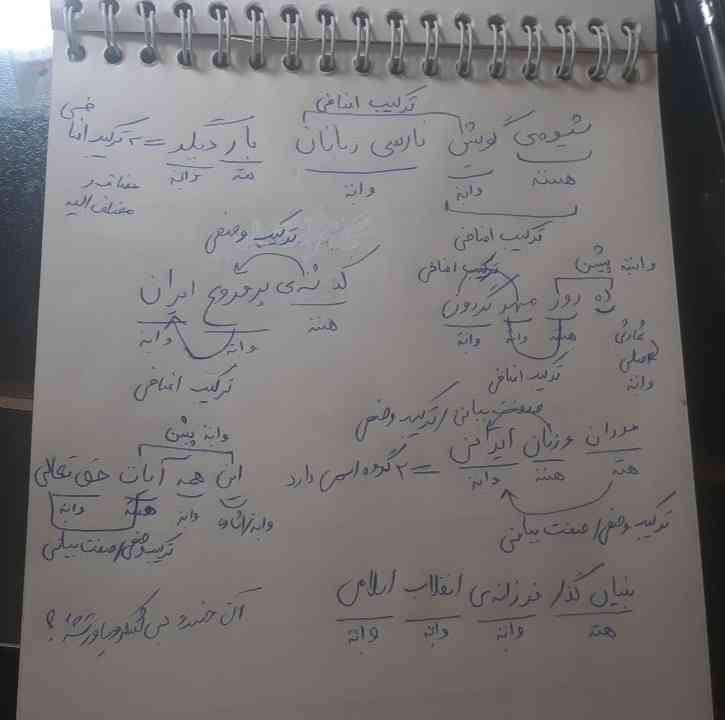 ترکیب اضافی
شیوه‌ی گویش فارسی زبانان
هسته وابسته وابسته
ترکیب اضافی
بار دیگر = ۲ ترکیب اضافی
هسته وابسته
مضاف و
مضاف الیه
وابسته پیشین
ترکیب اضافی
ده روز مهر گردون
هسته وابسته وابسته
اصلی
وابسته
ترکیب اضافی
ترکیب وصفی
ی پر فروغ ایران
هسته وابسته وابسته
ترکیب اضافی
صفت بیانی / ترکیب وصفی
مردان و زنان ایرانی = ۲ گروه اسمی دارد
هسته هسته وابسته
ترکیب وصفی / صفت بیانی
وابسته پیشین
این همه آیات حق تعالی
وابسته / اشاره وابسته هسته وابسته
ترکیب وصفی / صفت بیانی
بنیان گذار فرزانه‌ی انقلاب اسلامی
هسته وابسته وابسته وابسته
آن خنده